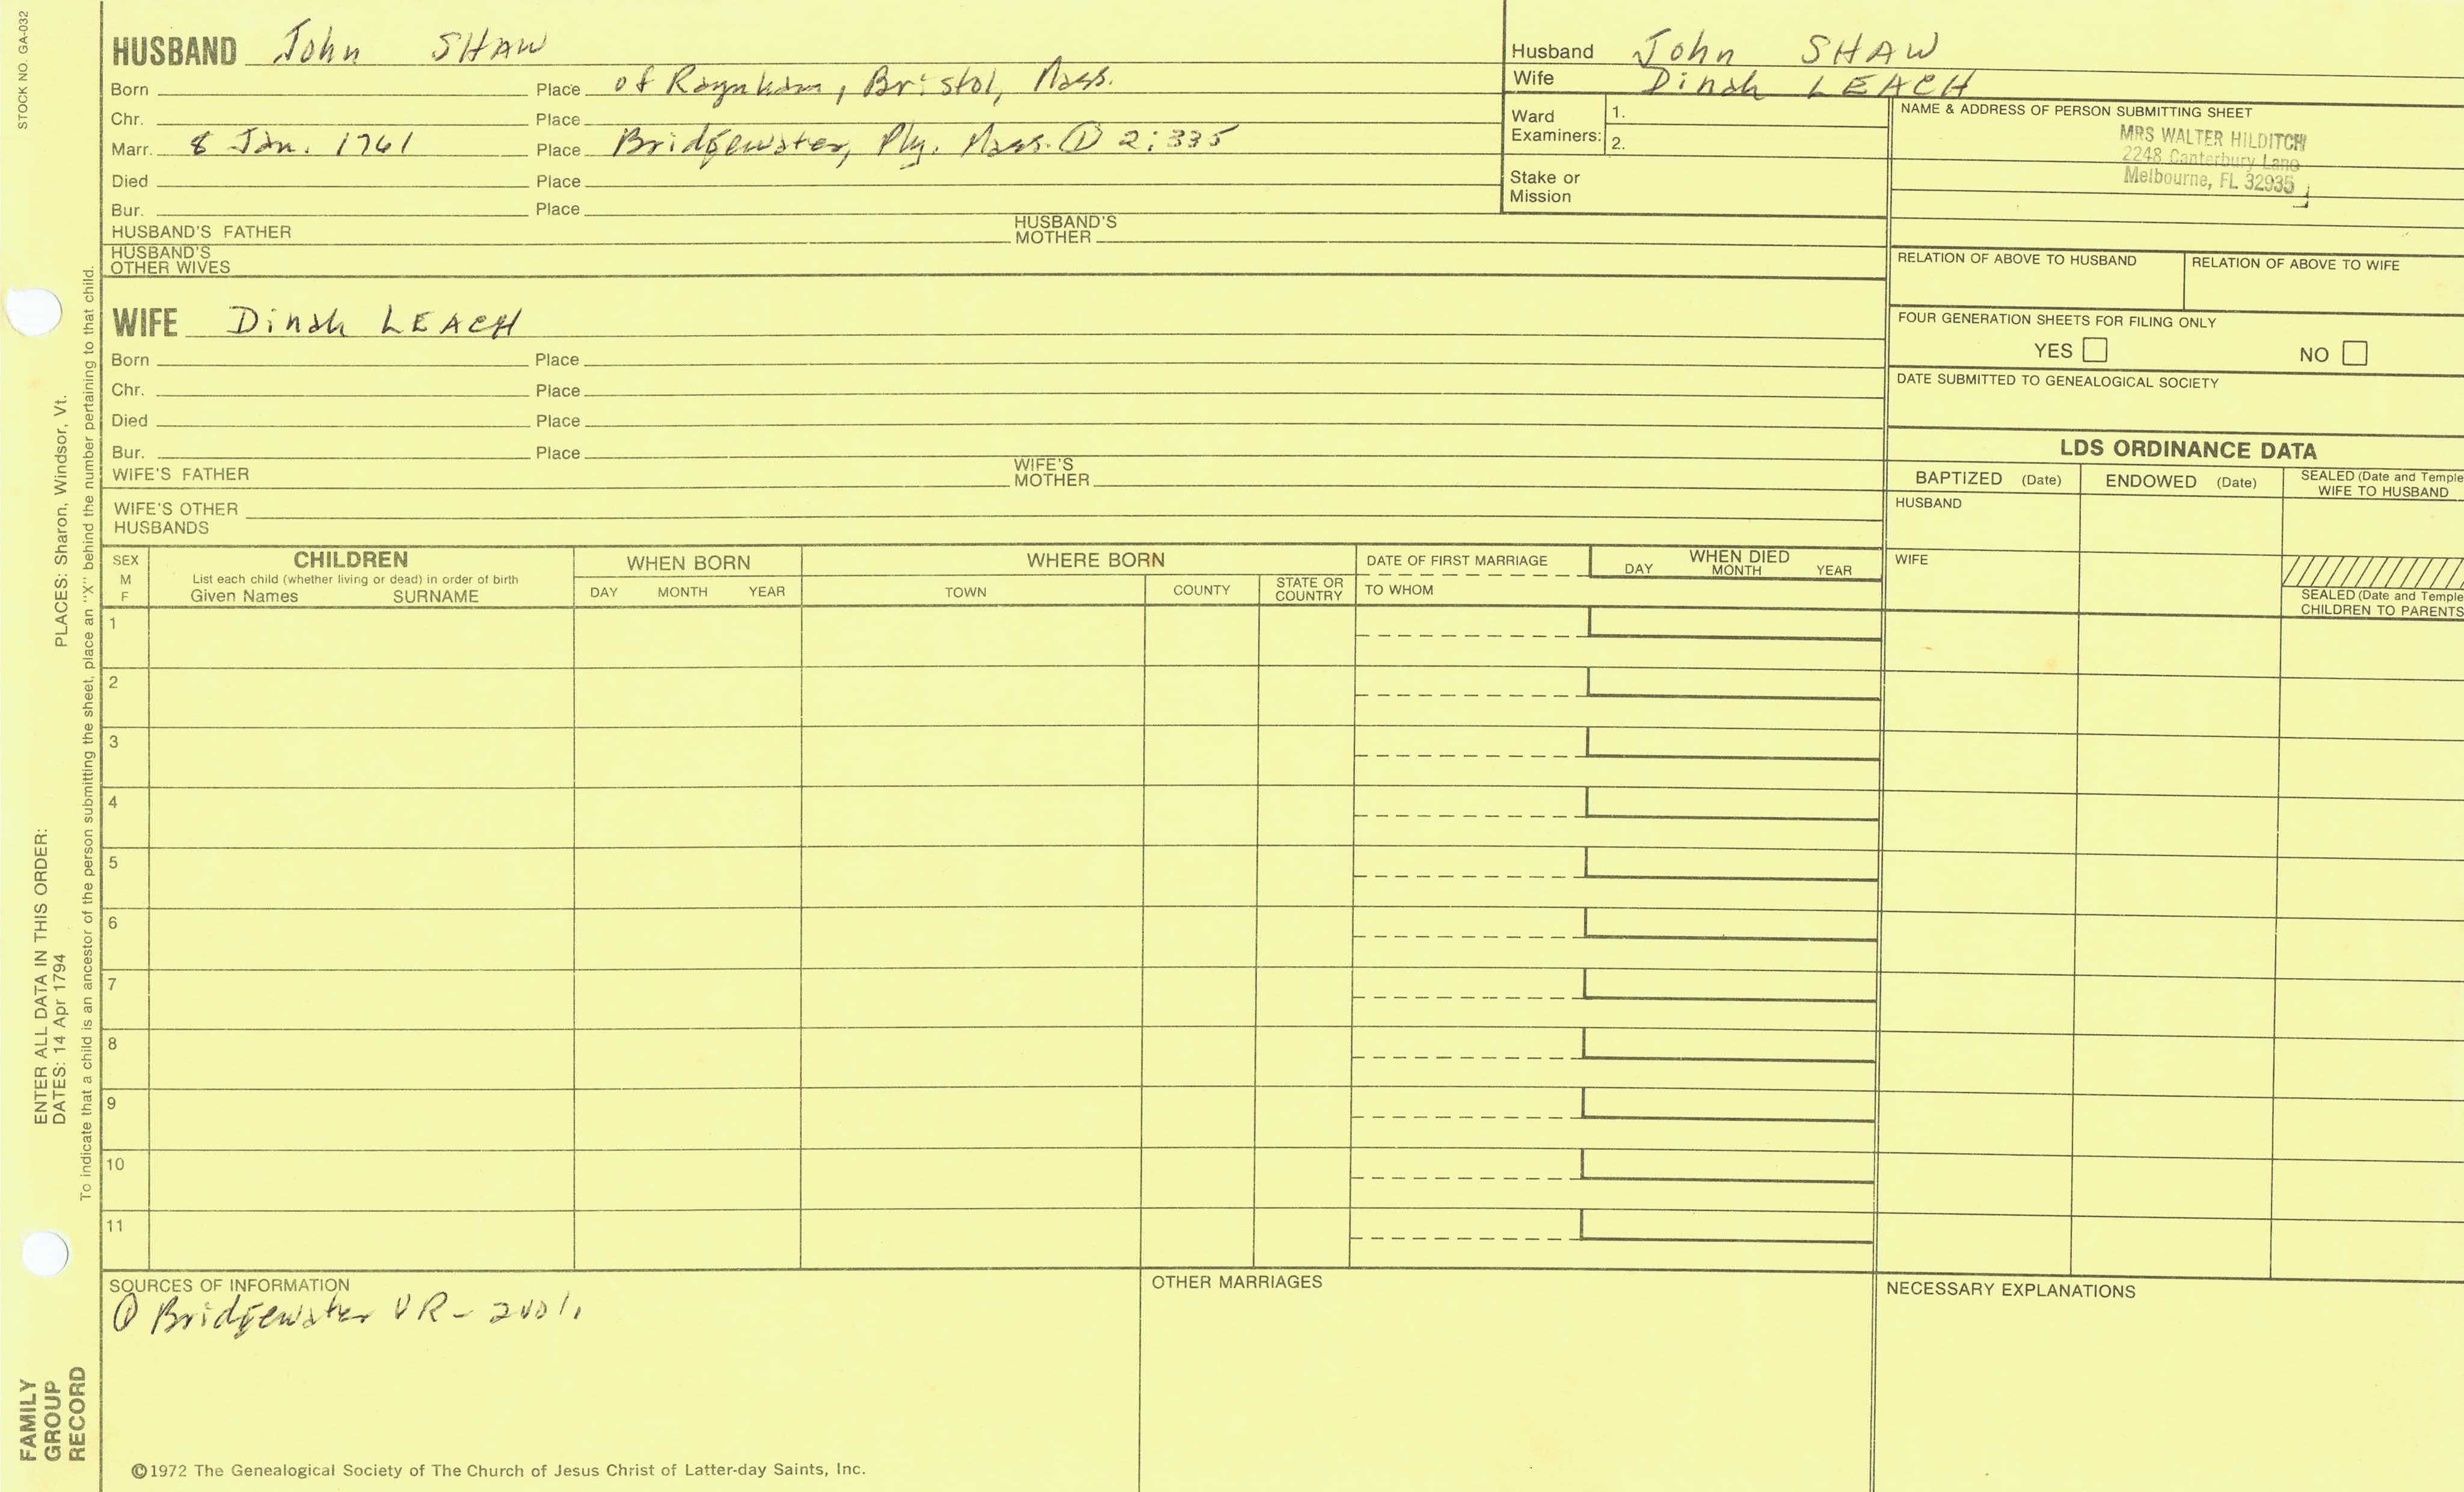 STOCK NO. GA-032
HUSBAND John SHAW
Born Place of Raynham, Bristol, Mass.
Chr. Place
Marr. 8 Jan. 1761 Place Bridgewater, Ply. Mass. ① 2:335
Died Place
Bur. Place
HUSBAND'S FATHER HUSBAND'S MOTHER
HUSBAND'S OTHER WIVES
Husband John SHAW
Wife Dinah LEACH
Ward Examiners: 1.
2.
Stake or Mission
NAME & ADDRESS OF PERSON SUBMITTING SHEET
MRS WALTER HILDITCH
2248 Canterbury Lane
Melbourne, FL 32935
RELATION OF ABOVE TO HUSBAND RELATION OF ABOVE TO WIFE
FOUR GENERATION SHEETS FOR FILING ONLY
YES NO
DATE SUBMITTED TO GENEALOGICAL SOCIETY
WIFE Dinah LEACH
Born Place
Chr. Place
Died Place
Bur. Place
WIFE'S FATHER WIFE'S MOTHER
WIFE'S OTHER HUSBANDS
LDS ORDINANCE DATA
BAPTIZED (Date) ENDOWED (Date) SEALED (Date and Temple
WIFE TO HUSBAND
HUSBAND
WIFE
SEALED (Date and Temple
CHILDREN TO PARENTS
SEX M F
CHILDREN
List each child (whether living or dead) in order of birth
Given Names SURNAME
WHEN BORN
DAY MONTH YEAR
WHERE BORN
TOWN COUNTY STATE OR COUNTRY
DATE OF FIRST MARRIAGE
TO WHOM
WHEN DIED
DAY MONTH YEAR
1
2
3
4
5
6
7
8
9
10
11
SOURCES OF INFORMATION
① Bridgewater VR - 2vol.
OTHER MARRIAGES
NECESSARY EXPLANATIONS
©1972 The Genealogical Society of The Church of Jesus Christ of Latter-day Saints, Inc.
FAMILY
GROUP
RECORD
ENTER ALL DATA IN THIS ORDER:
DATES: 14 Apr 1794 PLACES: Sharon, Windsor, Vt.
To indicate that a child is an ancestor of the person submitting the sheet, place an "X" behind the number pertaining to that child.